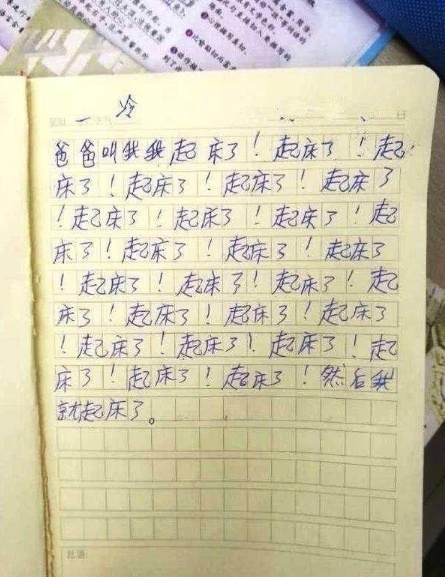 冷
日
爸爸叫我我起床了！起床了！起
床了！起床了！起床了！起床了
！起床了！起床了！起床了！起
床了！起床了！起床了！起床了
！起床了！起床了！起床了！起
床了！起床了！起床了！起床了
！起床了！起床了！起床了！起
床了！起床了！起床了！然后我
就起床了。
批语